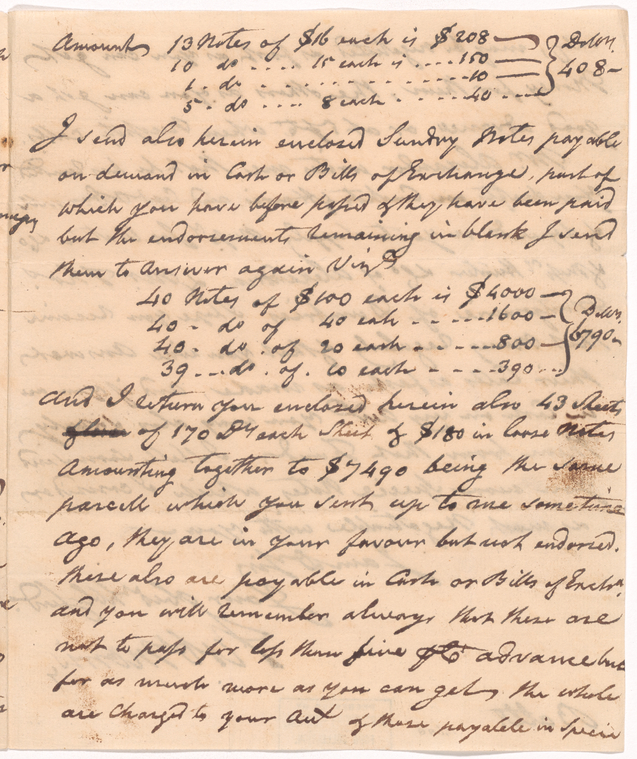 Amount 13 Notes of $16 each is $208 — Dollrs.
10 do .... 15 each is .... 150 — 408 —
1 do .......... 10 —
5 . do .... 8 each .... 40 ....
I send also herein enclosed Sundry Notes payable
on demand in Cash or Bills of Exchange, part of
which you have before passed & they have been paid
but the endorsements remaining in blank I send
them to answer again Vizt
40 Notes of $100 each is $4000 — Dollrs.
40 - do of 40 eah - - - - 1600 — 6790 —
40 - do . of 20 each - - - - 800 —
39 ... do . of . 10 each - - - 390 ...
And I return you enclosed herein also 43 Sheets
of 170 Drs each Sheet & $180 in loose Notes
Amounting together to $7490 being the same
parcell which you sent up to me sometime
ago, they are in your favour but not endorsed.
these also are payable in Cash or Bills of Excha.
and you will remember always that these are
not to pass for less than five advance but
for as much more as you can get, the whole
are Charged to your Act & those payable in Specie